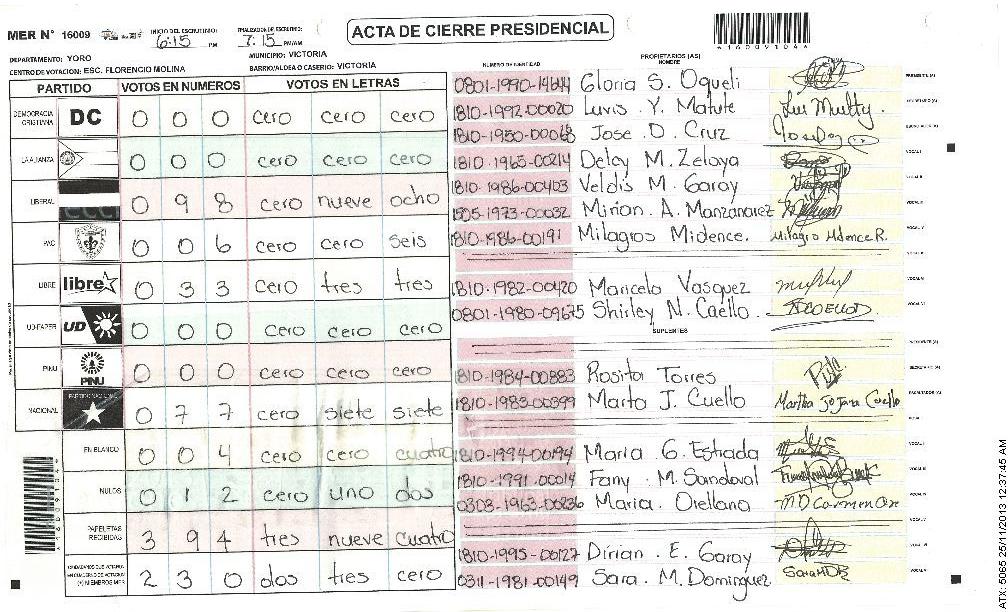 MER N° 16009
INICIO DEL ESCRUTINIO: 6:15 PM
FINALIZADOR DE ESCRUTINIO: 7:15 PM/AM
ACTA DE CIERRE PRESIDENCIAL
DEPARTAMENTO: YORO
MUNICIPIO: VICTORIA
CENTRO DE VOTACION: ESC. FLORENCIO MOLINA
BARRIO/ALDEA O CASERIO: VICTORIA
PARTIDO VOTOS EN NUMEROS VOTOS EN LETRAS
DEMOCRACIA CRISTIANA DC 0 0 0 cero cero cero
LA ALIANZA 0 0 0 cero cero cero
LIBERAL 0 9 8 cero nueve ocho
PAC 0 0 6 cero cero seis
LIBRE libre 0 3 3 cero tres tres
UD-FAPER UD 0 0 0 cero cero cero
PINU PINU 0 0 0 cero cero cero
NACIONAL PARTIDO NACIONAL 0 7 7 cero siete siete
EN BLANCO 0 0 4 cero cero cuatro
NULOS 0 1 2 cero uno dos
PAPELETAS RECIBIDAS 3 9 4 tres nueve cuatro
CIUDADANOS QUE VOTARON EN CUADERNO DE VOTACION (+) MIEMBROS MER 2 3 0 dos tres cero
NUMERO DE IDENTIDAD PROPIETARIOS (AS) NOMBRE
0801-1990-14644 Gloria S. Oqueli PRESIDENTE (A)
1810-1992-00020 Luvis Y. Matute SECRETARIO (A)
1810-1950-00068 Jose D. Cruz ESCRUTADOR (A)
1810-1965-00214 Delcy M. Zelaya VOCAL I
1810-1986-00403 Veldis M. Garay VOCAL II
1505-1973-00032 Mirian. A. Manzanarez
1810-1986-00191 Milagros Midence. Milagro Midence R.
1810-1982-00420 Maricela Vasquez
0801-1980-09675 Shirley N. Coello SCOELLO
SUPLENTES
PRESIDENTE (A)
1810-1984-00883 Rosita Torres SECRETARIO (A)
1810-1983-00399 Marta J. Cuello Martha Jojana Cuello ESCRUTADOR (A)
1810-1994-00194 Maria G. Estrada
1810-1991-00014 Fany M. Sandoval
0303-1963-00236 Maria Orellana
1810-1995-00127 Dirian. E. Garay
0311-1981-00149 Sara. M. Dominguez Sara MDR
160091044
ATX: 5065 25/11/2013 12:37:45 AM